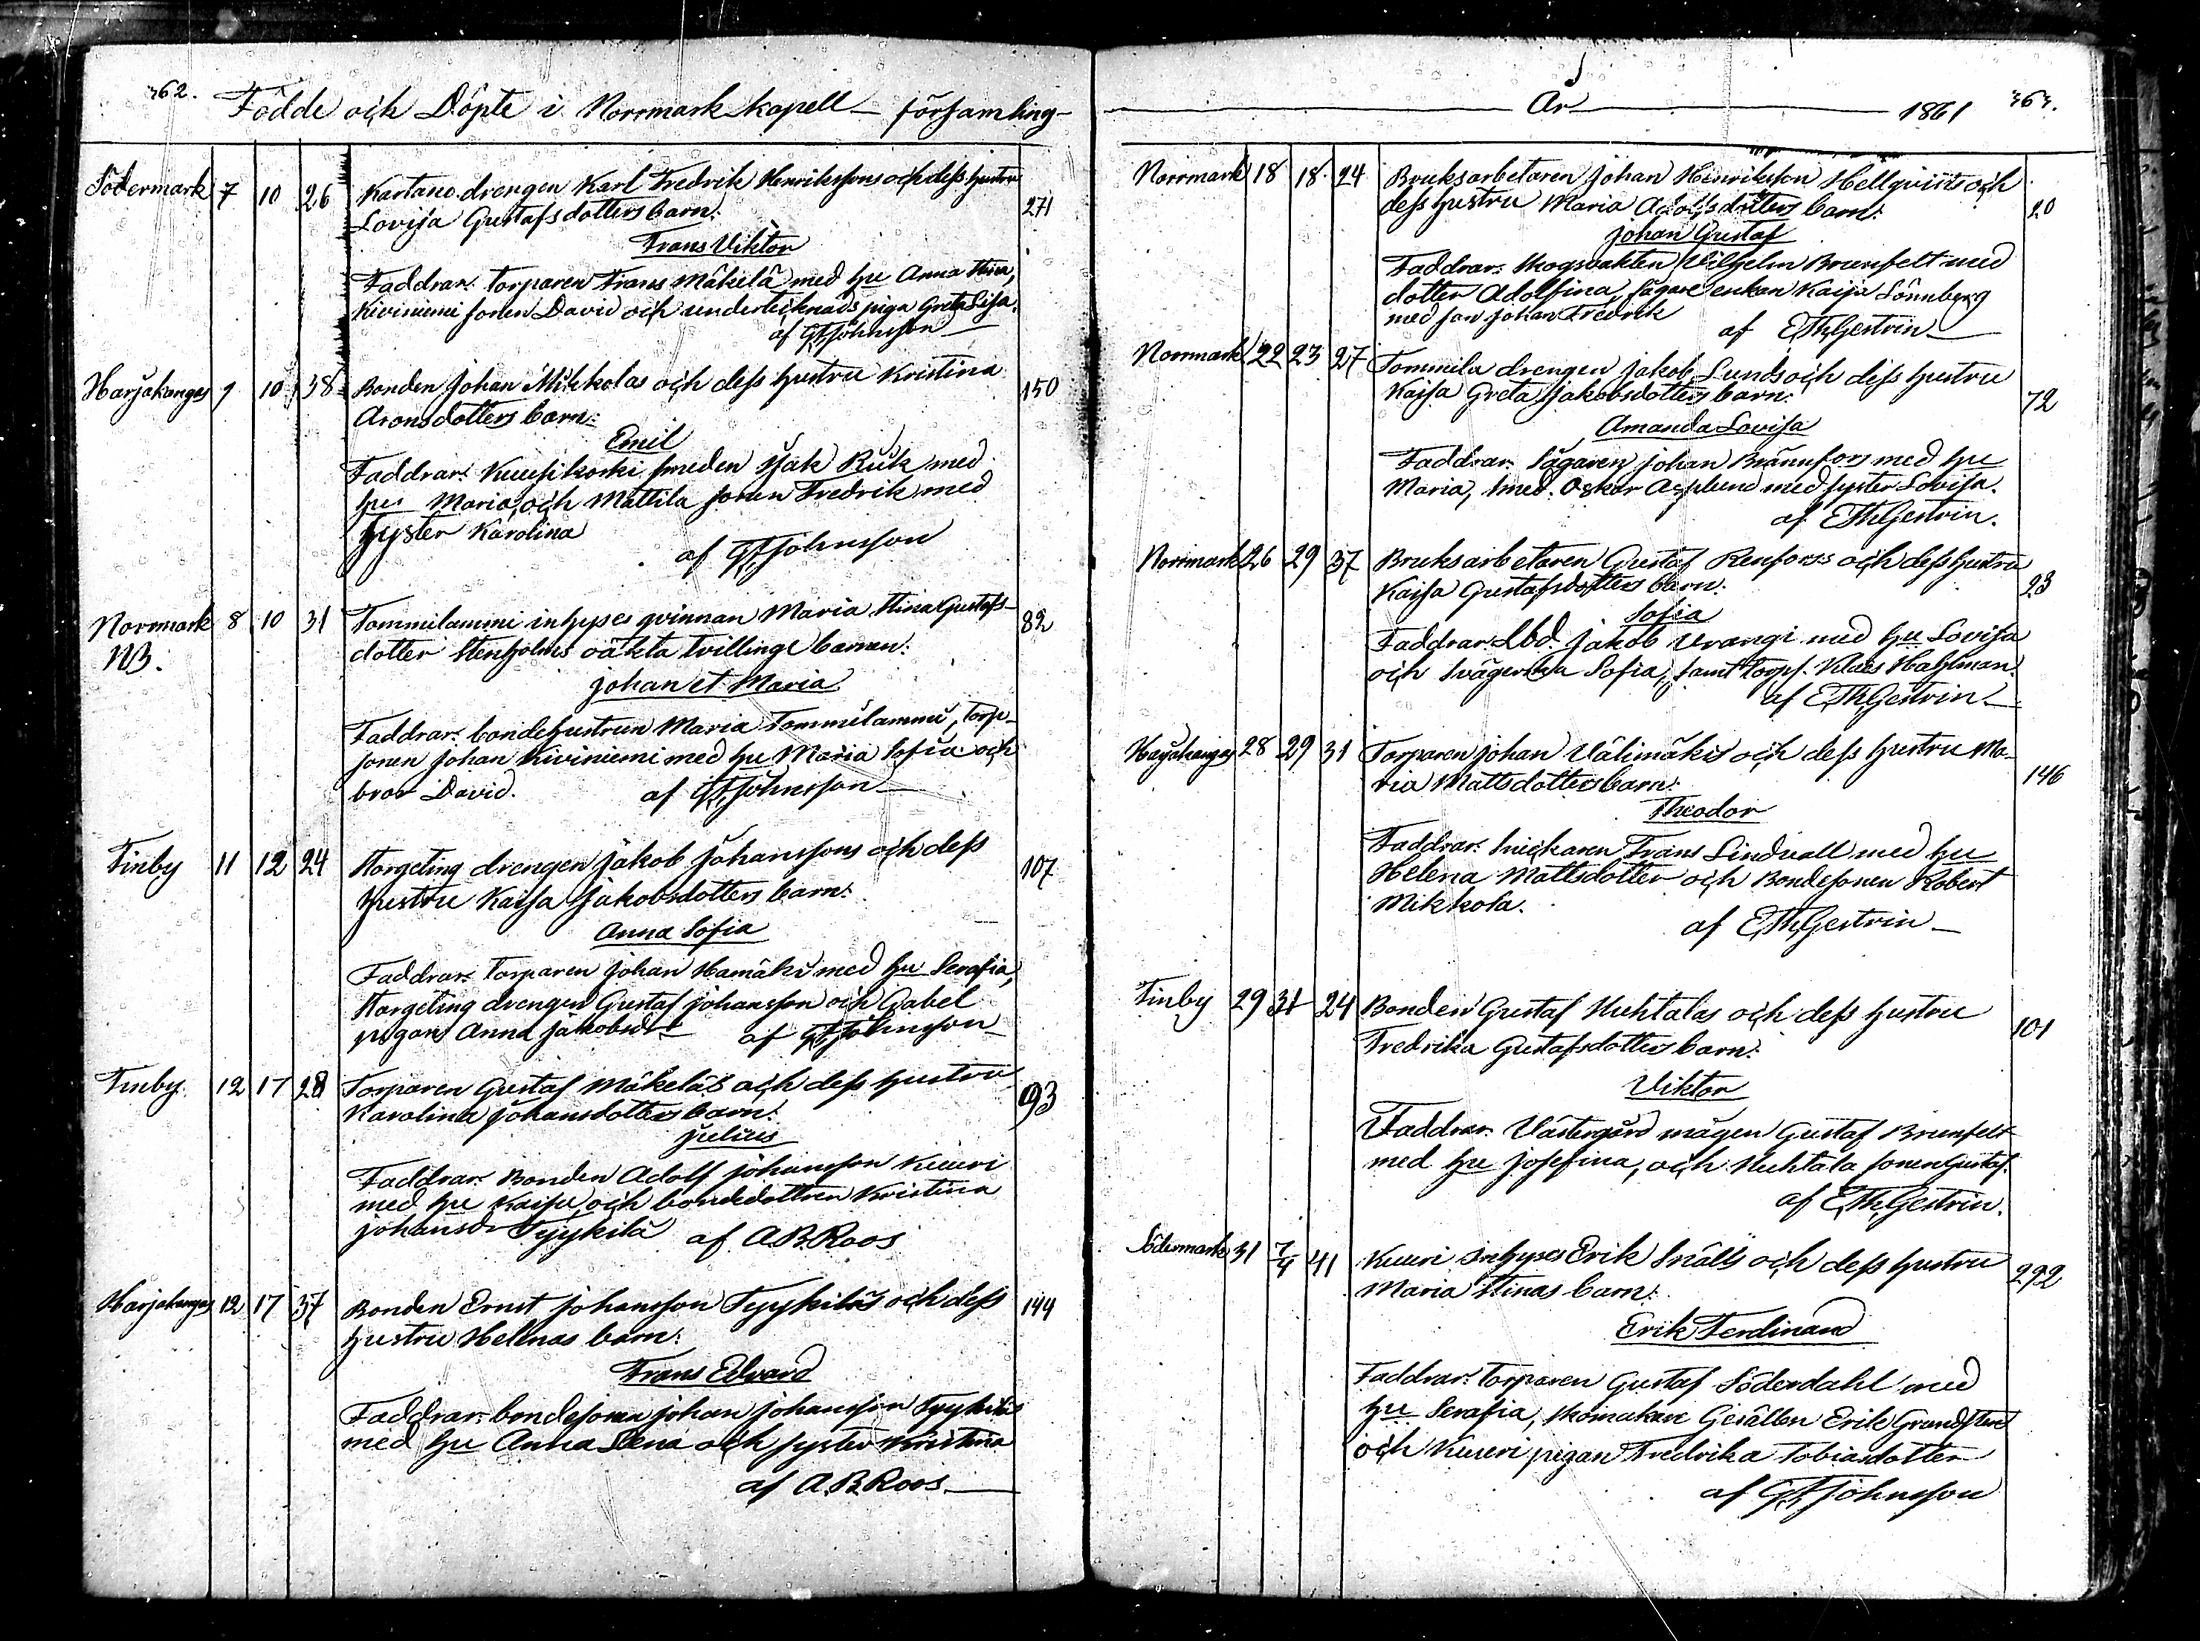 362.
Födde och Döpte i Norrmark kapell församling
Södermark 7 10 26 Kartano drengen Karl Fredrik Henrikssons och dess hustru
Lovisa Gustafsdotters barn: 271
Frans Viktor
Faddrar: torparen Frans Mäkelä med hu Anna Stina,
Kiviniemi sonen David och undertecknads piga Greta Lisa.
af G.F. Johnsson
Harjakangas 7 10 38 Bonden Johan Mikkolas och dess hustru Kristina 150
Aronsdotters barn:
Emil
Faddrar: Kuusikoski smeden Isak Riik med
hu Maria, och Mattila sonen Fredrik med
syster Karolina
af G.F. Johnsson
Norrmark 8 10 31 Tommilammi inhyses qvinnan Maria Stina Gustafs- 82
NB. dotter Stenholms oäkta tvillinge barnen:
Johan et Maria
Faddrar: bondehustrun Maria Tommilammi, torp-
sonen Johan Kiviniemi med hu Maria Sofia och
bror David. af G.F. Johnsson
Finby 11 12 24 Storgeting drengen Jakob Johanssons och dess 107
hustru Kaisa Jakobsdotters barn:
Anna Sofia
Faddrar: torparen Johan Hamäki med hu Serafia,
Storgeting drengen Gustaf Johansson och Gabel
pigan Anna Jakobsdr af G.F. Johnsson
Finby 12 17 28 Torparen Gustaf Mäkeläs och dess hustru 93
Karolina Johansdotters barn:
Julius
Faddrar: Bonden Adolf Johansson Kuuri
med hu Kaisa, och bondedottren Kristina
Johansdr Tyykilä af A.B. Roos
Harjakangas 12 17 37 Bonden Ernst Johansson Tyykiläs och dess 144
hustru Helenas barn:
Frans Edvard
Faddrar: bondesonen Johan Johansson Tyykilä
med hu Anna Lena och syster Kristina
af A.B. Roos.
År 1861 363.
Norrmark 18 18 24 Bruksarbetaren Johan Henriksson Hellqvists och
dess hustru Maria Adolfsdotters barn: 20
Johan Gustaf
Faddrar: Skogsvakten Vilhelm Brunfelt med
dotter Adolfina, sågare enkan Kaisa Lönnberg
med son Johan Fredrik
af E.Th. Gestrin
Norrmark 22 23 27 Tommila drengen Jakob Lunds och dess hustru
Kaisa Greta Jakobsdotters barn: 72
Amanda Lovisa
Faddrar: Sågaren Johan Brännfors med hu
Maria, smed. Oskar Asplund med syster Lovisa.
af E.Th. Gestrin.
Norrmark 26 29 37 Bruksarbetaren Gustaf Renfors's och dess hustru
Kaisa Gustafsdotters barn: 23
Sofia
Faddrar: Lbd. Jakob Vrangi med hu Lovisa
och Svägerskan Sofia, samt torps. Klaes Hahlman.
af E.Th. Gestrin
Harjakangas 28 29 31 Torparen Johan Välimäkis och dess hustru Ma-
ria Mattsdotters barn: 146
Theodor
Faddrar: Snickaren Frans Lindvall med hu
Helena Mattsdotter och Bondesonen Robert
Mikkola.
af E.Th. Gestrin
Finby 29 31 24 Bonden Gustaf Huhtalas och dess hustru
Fredrika Gustafsdotters barn: 101
Viktor
Faddrar: Västergård mågen Gustaf Brunfelt
med hu Josefina, och Huhtala sonen Gustaf.
af E.Th. Gestrin.
Södermark 31 7/4 41 Kuuri Inhyses Erik Snälls och dess hustru
Maria Stinas barn: 292
Erik Ferdinand
Faddrar: torparen Gustaf Söderdahl med
hu Serafia, skomakare Gesällen Erik Grandsten
och Kuuri pigan Fredrika Tobiasdotter
af G.F. Johnsson